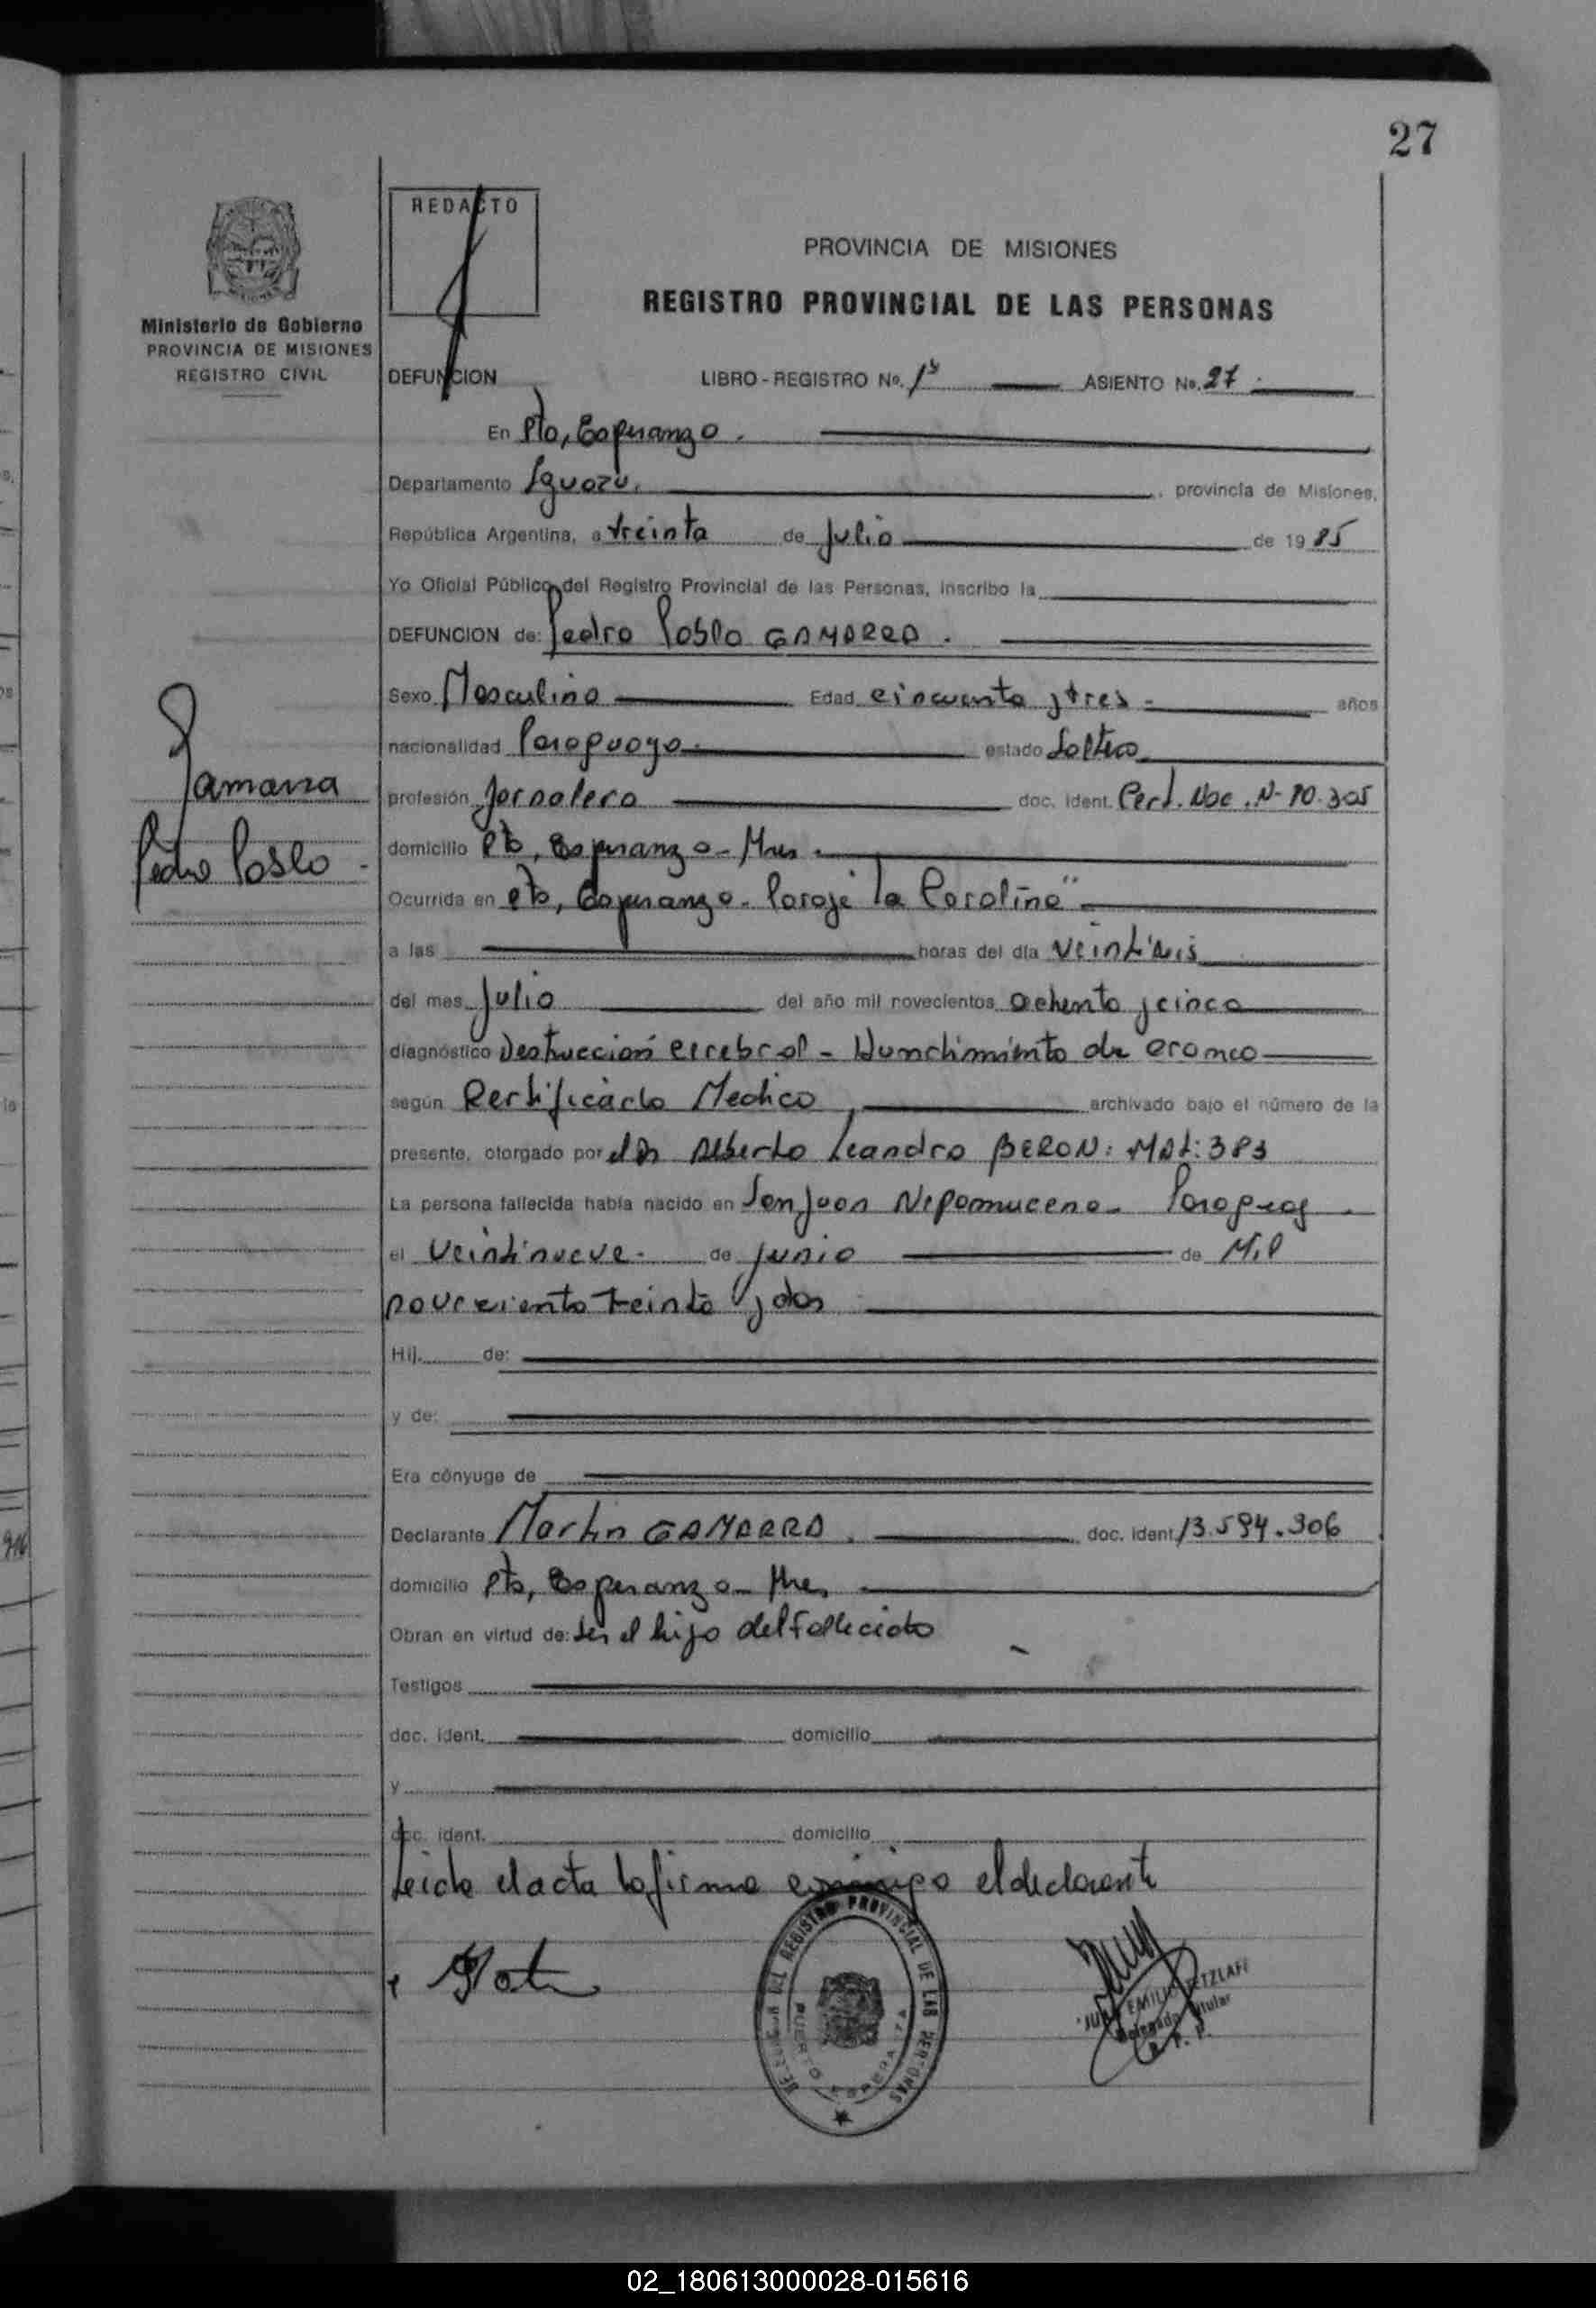 27
REDACTO
PROVINCIA DE MISIONES
REGISTRO PROVINCIAL DE LAS PERSONAS
Ministerio de Gobierno
PROVINCIA DE MISIONES
REGISTRO CIVIL
DEFUNCION LIBRO - REGISTRO No. 1º ASIENTO No. 27.
En Pto, Esperanza.
Departamento Iguazú, provincia de Misiones,
República Argentina, a treinta de Julio de 1985
Yo Oficial Público del Registro Provincial de las Personas, inscribo la
DEFUNCION de: Pedro Pablo GAMARRA.
Sexo Masculino Edad cincuenta y tres años
nacionalidad Paraguaya estado Soltero
Gamarra
Pedro Pablo
profesión Jornalero doc. ident. Cert. Nac. Nº 90.305
domicilio Pto, Esperanza - Mnes.
Ocurrida en Pto, Esperanza - Paraje "La Carolina"
a las horas del día veintiseis
del mes Julio del año mil novecientos ochenta y cinco
diagnóstico Destruccion cerebral - Hundimiento de craneo
según Certificado Medico archivado bajo el número de la
presente, otorgado por el Dr Alberto Leandro BERON: MAT: 383
La persona fallecida había nacido en San Juan Nepomuceno - Paraguay
el veintinueve. de junio de Mil
noveciento treinta y dos
Hij. de:
y de:
Era cónyuge de
Declarante Martin GAMARRA. doc. ident. 13.594.306
domicilio Pto, Esperanza - Mnes
Obran en virtud de: ser el hijo del fallecido
Testigos
doc. ident. domicilio
y
doc. ident. domicilio
Leida el acta la firma conmigo el declarante
REGISTRO PROVINCIAL DE LAS PERSONAS
PUERTO ESPERANZA
Delegado Titular
02_180613000028-015616